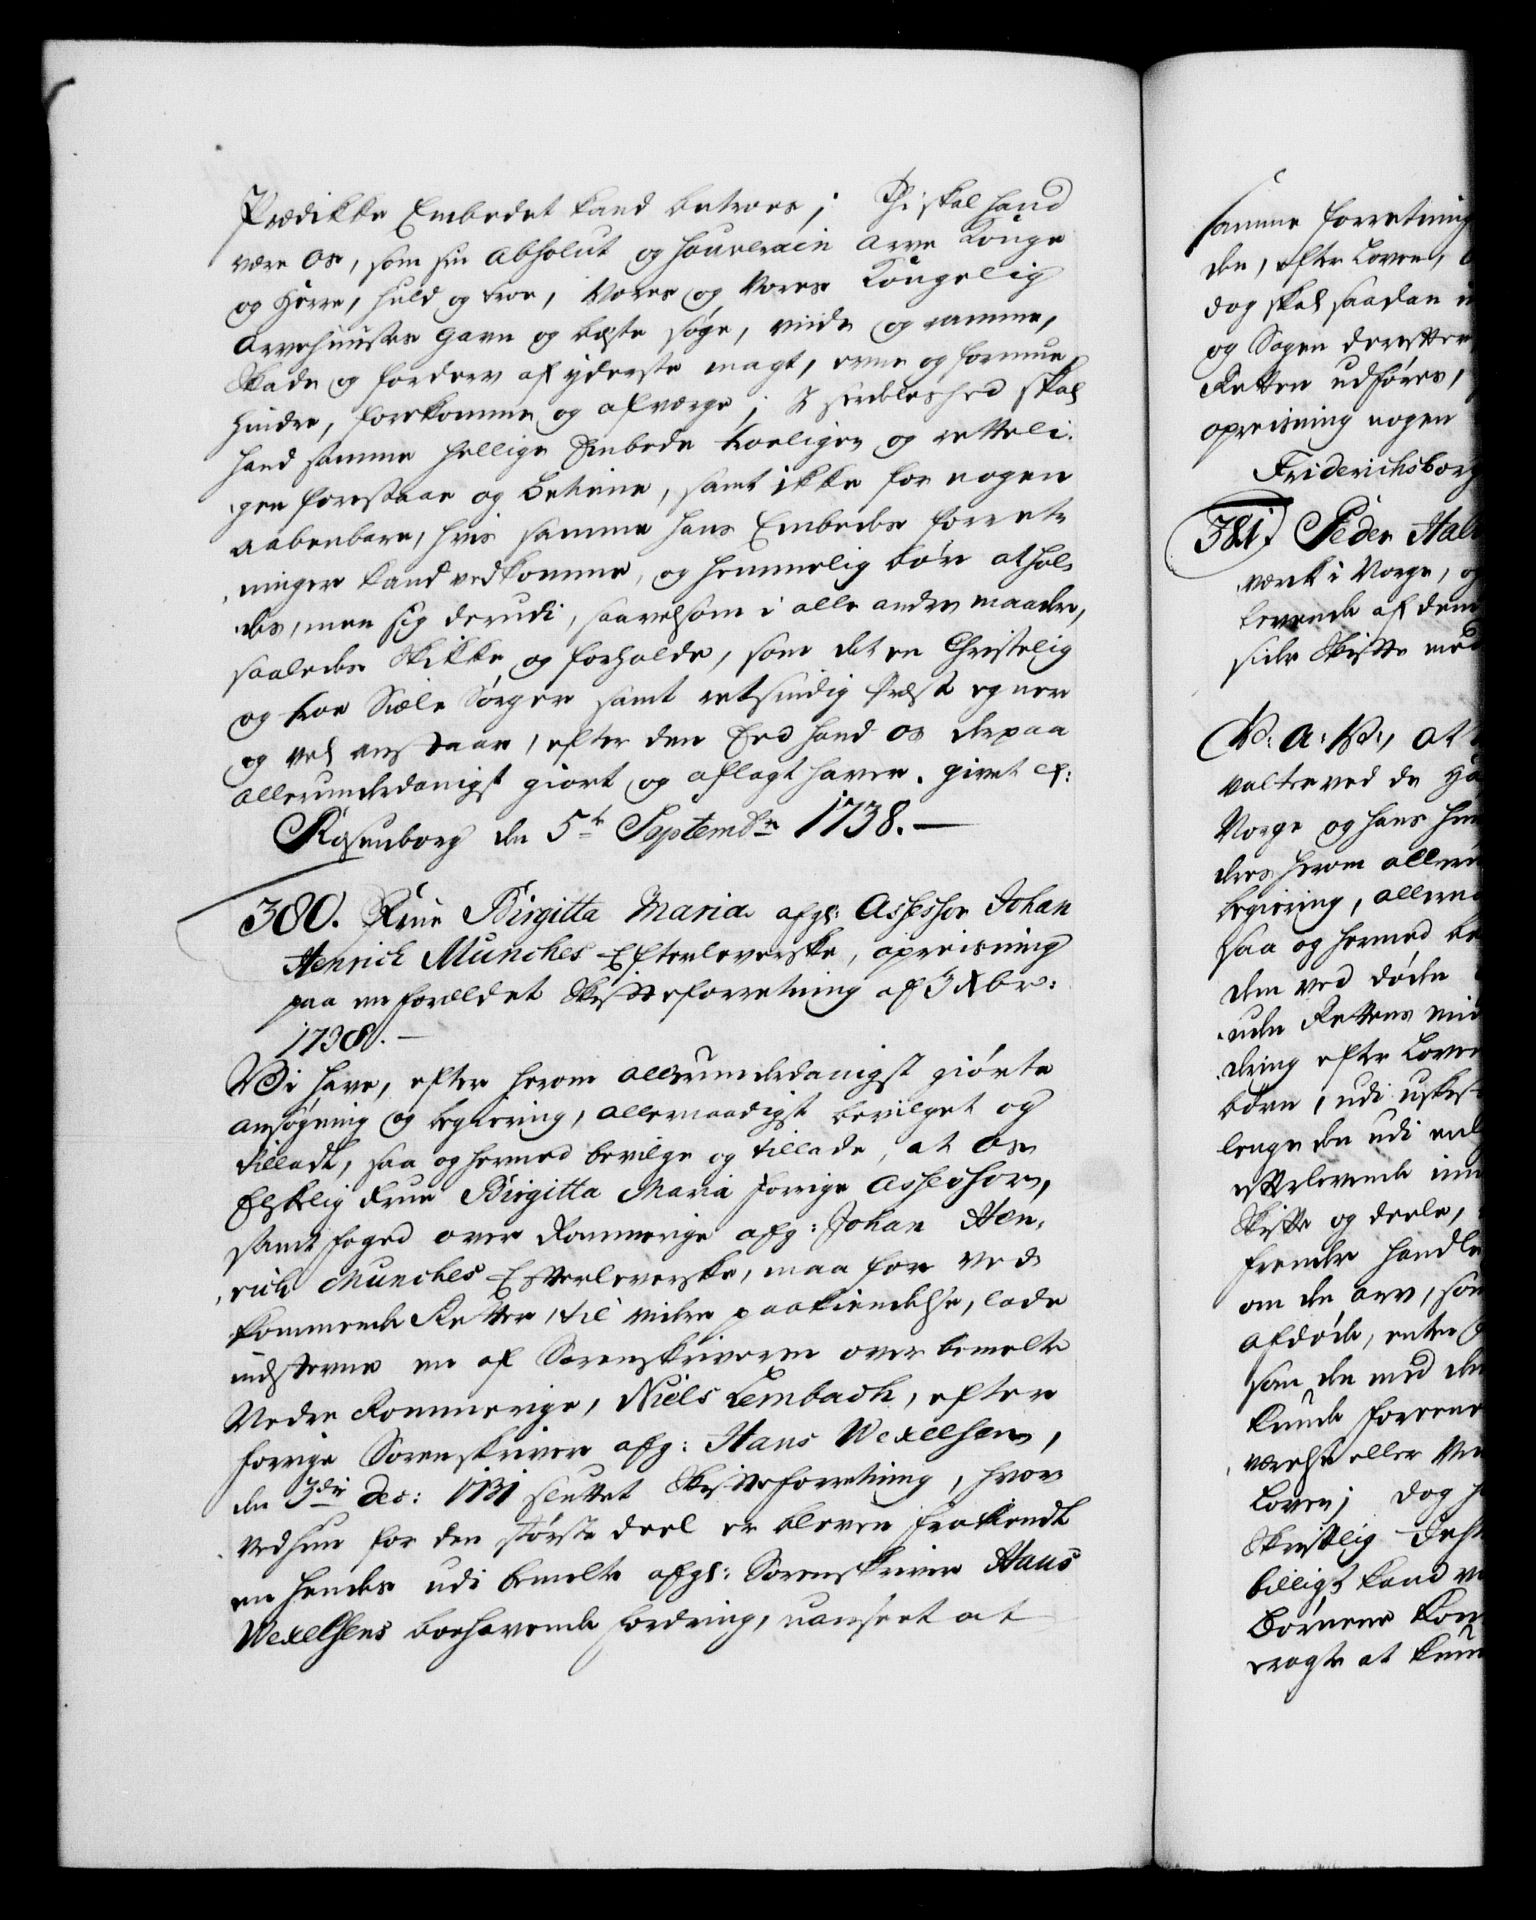 Prædikke Embedet kand betroes; Thi skal hand
være Os, som sin Absolut og Souverain Arve Konge
og Herre, huld og troe, Vores og Vores Kongelig
Arvehuuses Gavn og beste søge, viide og ramme,
Skade og forderv af yderste magt, evne og formue
hindre, forekomme og afværge; I særdeleshed skal
hand samme hellige Embede troeligen og retteli-
gen forestaae og betiene, samt ikke for nogen
aabenbare, hvis samme hans Embedes forret-
ninger kand vedkomme, og hemmelig bør athol-
des, men sig derudi, saavelsom i alle andre maader,
saaledes skikke og forholde, som det en Christelig
og troe Siæle Sørger samt retsindig Præst egner
og vel anstaaer, efter den Eed hand Os derpaa
allerunderdanigst giort og aflagt haver. givet Cf:
Rosenborg den 5t Septembr 1738.—
380. Frue Birgitta Maria afgl: Assessor Johan
Henrich Munches Efterleverske, opreisning
paa en forældet Skifteforretning af 3 Xbr:
1738.—
Vi have, efter herom allerunderdanigst giørte
ansøgning og begiering, allernaadigst bevilget og
tilladt, saa og hermed bevilge og tillade, at Os
Elskelig Frue Birgitta Maria forrige Assessors,
samt foged over Rommerige afg: Johan Hen-
rich Munches Efterleverske, maa for ved-
kommende Retter, til videre paakiendelse, lade
indstevne en af Sorenskriveren over bemelte
Nedre Rommerige, Niels Lembach, efter
forrige Sorenskriver afg: Hans Wexelsen,
den 3die Dec: 1731 sluttet Skifteforretning, hvor
ved hun for den største deel er bleven frakiendt
en hendes udi bemelte afgl: Sorenskriver Hans
Wexelsens boe havende fordring, uanseet at
samme forretning
den, efter Loven,
dog skal saadan
og Sagen derefter
Retten udføres,
opreisning nogen
Friderichsborg
381. Peder Hal
værk i Norge, og
levende af dem
sidde Skifte med
V: A: V:, at
valter ved de
Norge og hans
deres herom aller
begiering, allerna
saa og hermed be
den ved døde
uden Rettens
dring efter Loven
børn, udi uskif-
lenge den udi enl
efterlevende
Skifte og deele,
frender handle
om den arv, som
afdøde, enten
som den med den
kunde foreene
værelse eller
Loven; dog
Skriftlig
billigst kand
Børnene kom
tragte at kun